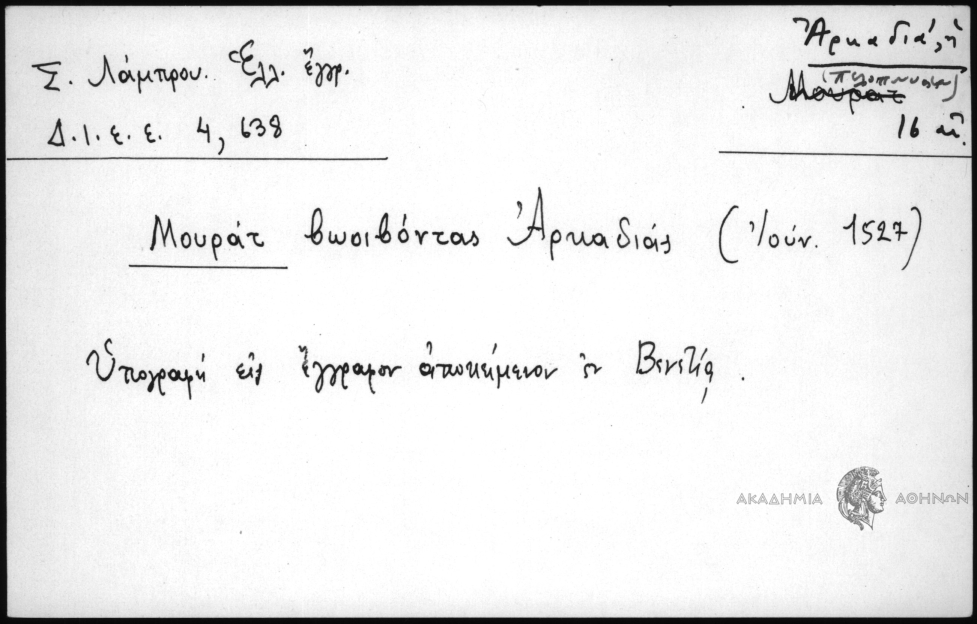 Σ. Λάμπρου. Ἑλλ. ἔγγρ.
Δ.Ι.Ε.Ε. 4, 638
Ἀρκαδιά, ἡ
(Πελοποννήσου)
Μουράτ
16 αἰ.
Μουράτ βωιβόντας Ἀρκαδιάς (Ἰούν. 1527)
Ὑπογραφὴ εἰς ἔγγραφον ἀποκείμενον ἐν Βενετίᾳ.
ΑΚΑΔΗΜΙΑ ΑΘΗΝΩΝ